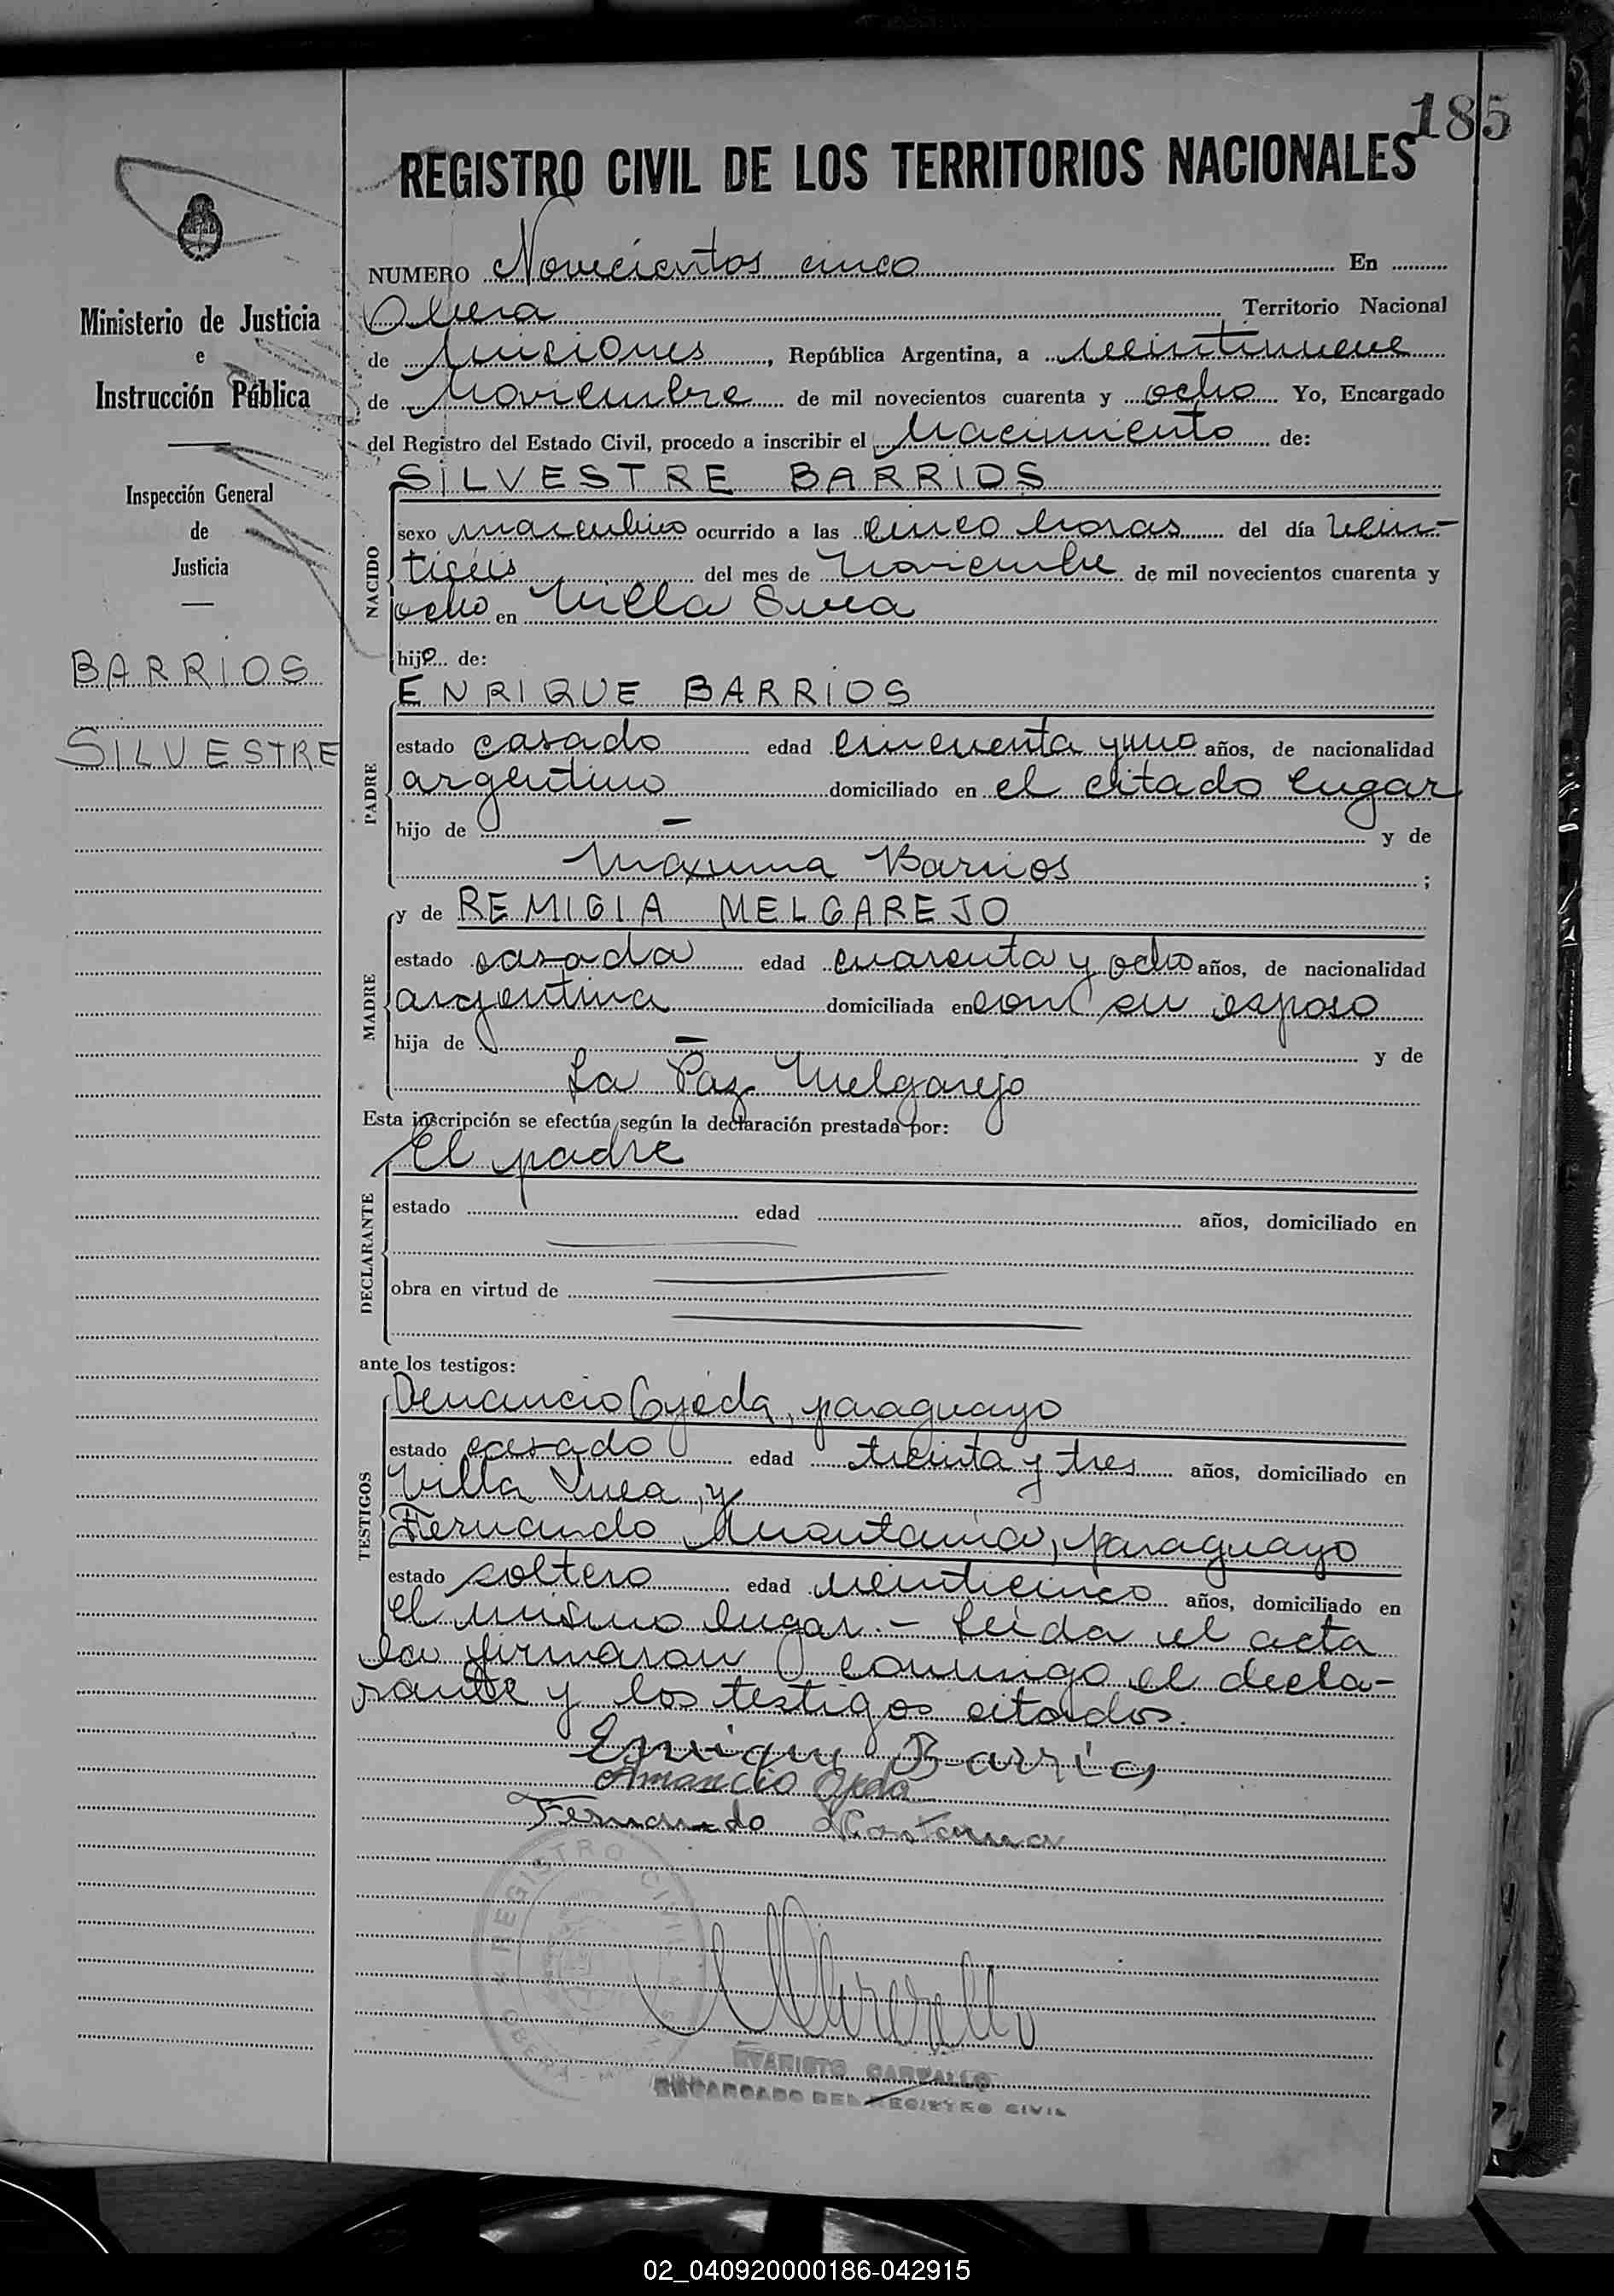 185
REGISTRO CIVIL DE LOS TERRITORIOS NACIONALES
Ministerio de Justicia
e
Instrucción Pública
Inspección General
de
Justicia
BARRIOS
SILVESTRE
NUMERO Novecientos cinco En
Obera Territorio Nacional
de Misiones, República Argentina, a veintinueve
de Noviembre de mil novecientos cuarenta y ocho Yo, Encargado
del Registro del Estado Civil, procedo a inscribir el Nacimiento de:
NACIDO
SILVESTRE BARRIOS
sexo masculino ocurrido a las cinco horas del día vein-
tiséis del mes de Noviembre de mil novecientos cuarenta y
ocho en Villa Svea
hijo de:
PADRE
ENRIQUE BARRIOS
estado casado edad cincuenta y uno años, de nacionalidad
argentino domiciliado en el citado lugar
hijo de — y de
Máxima Barrios ;
MADRE
y de REMIGIA MELGAREJO
estado casada edad cuarenta y ocho años, de nacionalidad
argentina domiciliada en con su esposo
hija de — y de
La Paz Melgarejo
Esta inscripción se efectúa según la declaración prestada por:
DECLARANTE
El padre
estado edad años, domiciliado en
obra en virtud de
ante los testigos:
TESTIGOS
Venancio Ojeda, paraguayo
estado casado edad treinta y tres años, domiciliado en
Villa Svea, y
Fernando Montania, paraguayo
estado soltero edad veinticinco años, domiciliado en
el mismo lugar.- Leída el acta
la firmaron conmigo el decla-
rante y los testigos citados.
Enrique Barrios
Amancio Ojeda
Fernando Montania
REGISTRO CIVIL
OBERA
EVARISTO CARVALLO
ENCARGADO DEL REGISTRO CIVIL
02_040920000186-042915